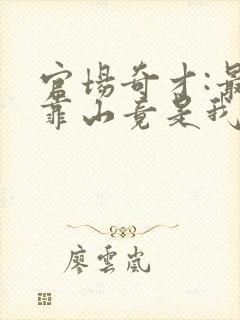 官场奇才:最
靠山竟是我
廖雲嵐